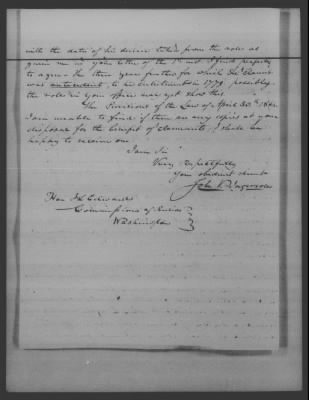 with the date of his service taken from the role as
given me in your letter of the 1st inst I find
to agree the three years further for which he claims
was antecedent to his enlistment in 1779 possibly
the role in your office may yet show this.
The Provisions of the Law of April 30th
I am unable to find if there are any copies at your
disposal for the benefit of claimants, I shall be
happy to receive one.
I am Sir
Very respectfully
Your obedient servant
John
Hon J L Edwards
Commissioner of Pensions
Washington